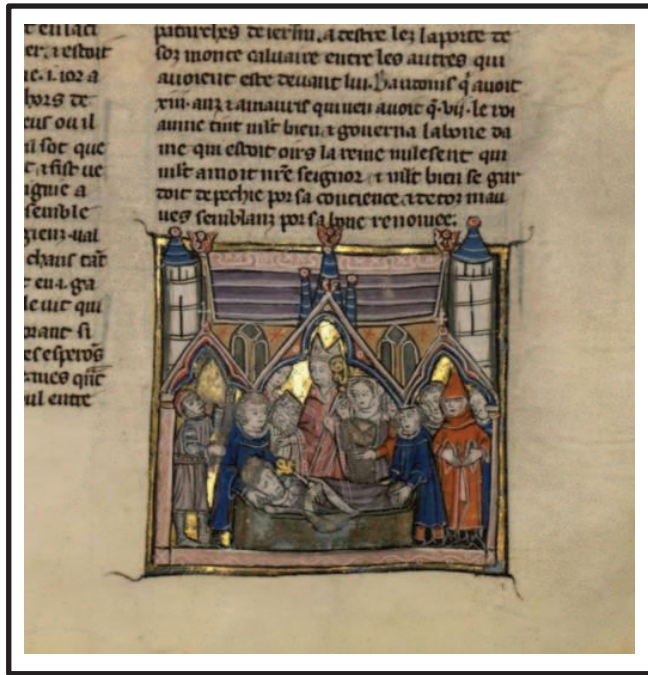 t en laci
er. ⁊ estoit
ne. i. ior a
hors de
eus ou il
il sot que
t ⁊ fist ve
ignie a
semble
ual
chanz tāt
t en .i. gra
le uit qui
orant si
es esperōs
mes qn̄t
ul entre
de ierľm. a destre lez la porte de
soz monte caluaire entre les autres qui
auoient este deuant lui. Baudoins q̄ auoit
xiii. anz ⁊ amauris qui neu auoit q̄ .vij. le roi
aume tint mľt bien ⁊ gouerna la bone da
me qui estoit oirs la reine milesent qui
mľt amoit nr̄e seignor ⁊ mľt bien se gar
doit de pechie por sa concience ⁊ de toz mau
ues semblanz por sa bone renomee.